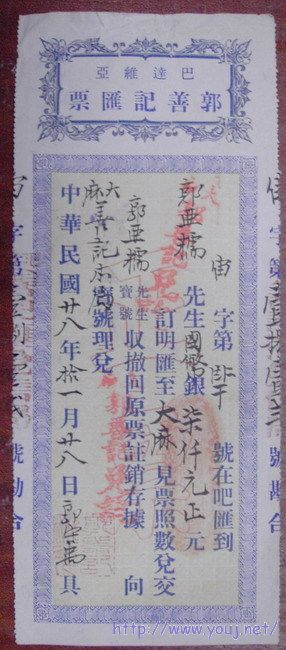 巴達維亞
郭善記匯票
字第 號勘合
宙字第 號在吧匯到
郭亞檽先生國幣銀柒仟元正元
訂明匯至大麻見票照數兌交
郭亞檽先生寶號取撤回原票註銷存據 向
大麻善記 寶號理兌
中華民國廿八年拾一月廿八日 郭 具
字第 號勘合
http://www.youj.net/